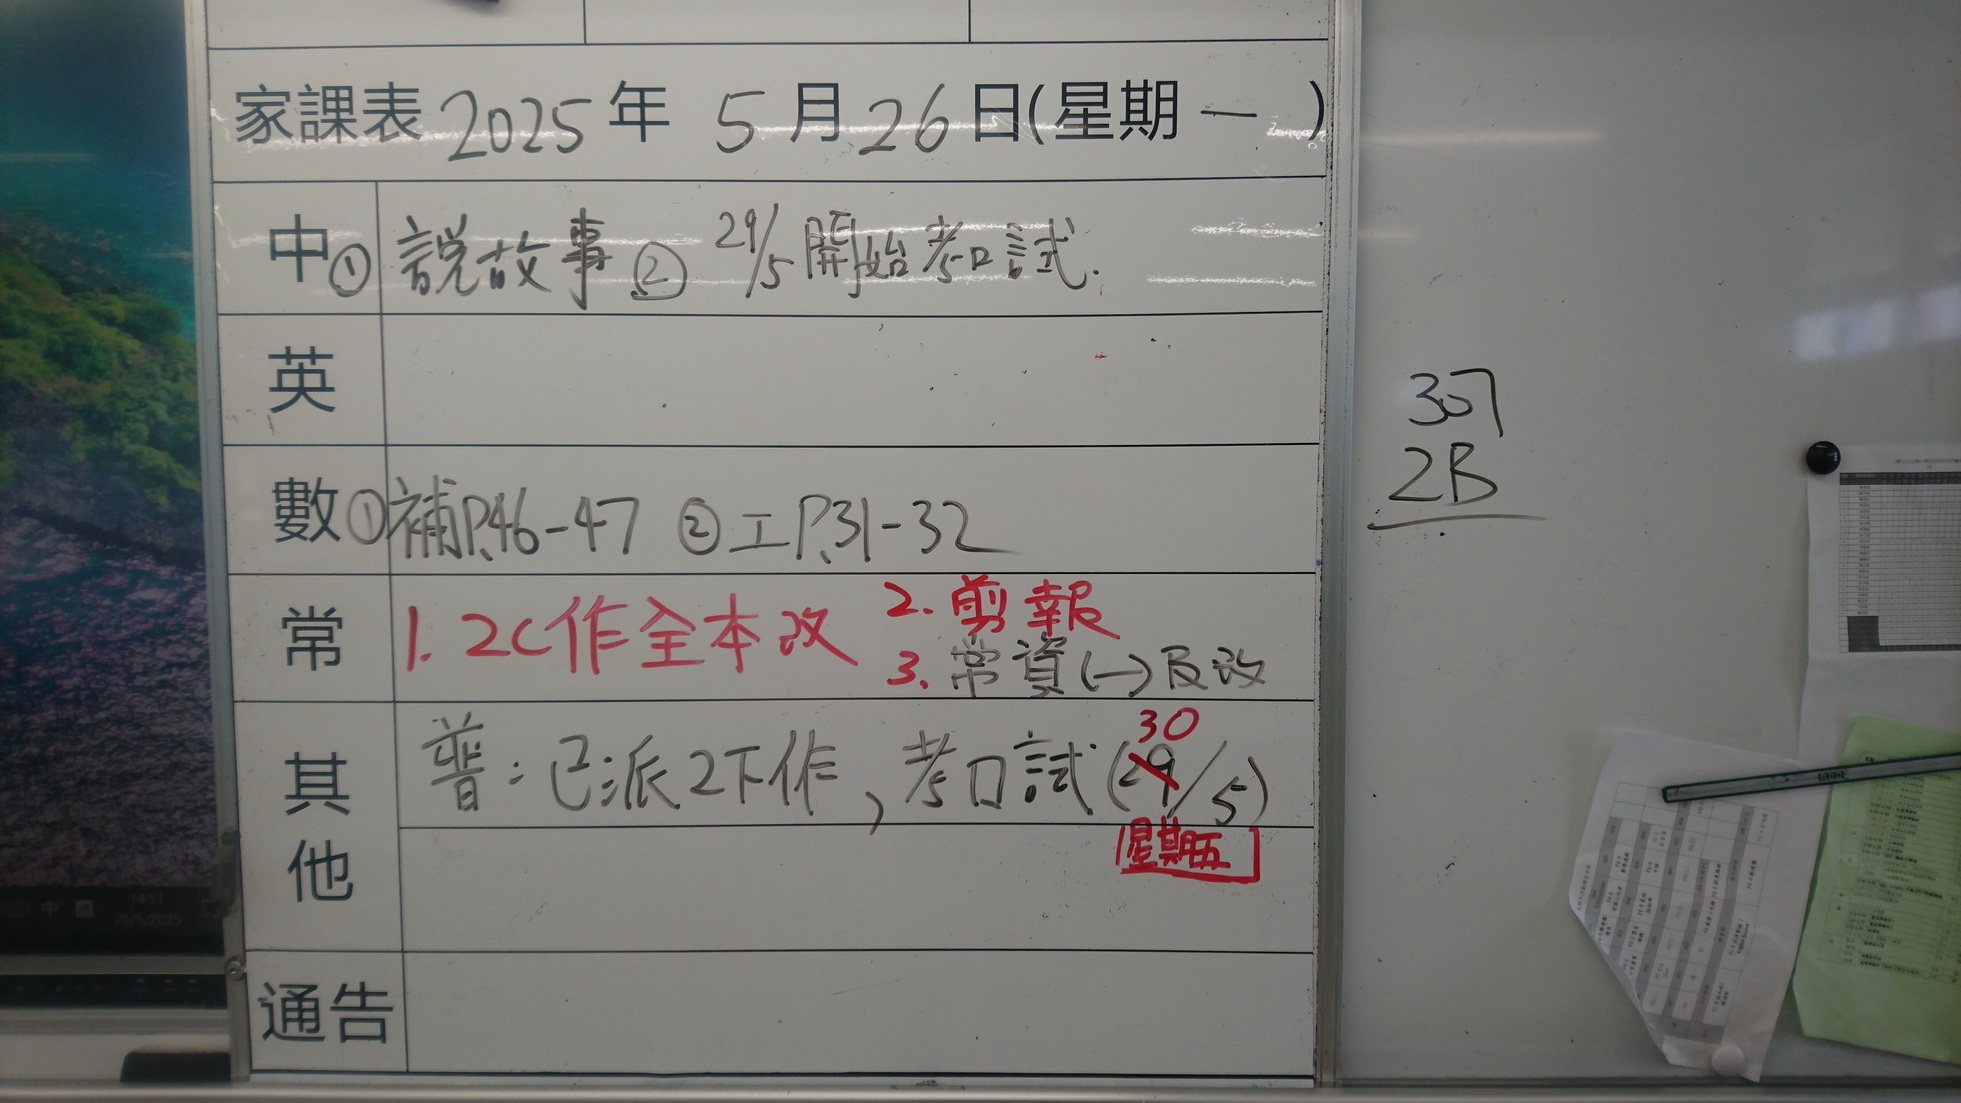 家課表 2025 年 5 月 26 日(星期 一 )
中 ① 說故事 ② 29/5 開始考口試.
英
數 ① 補P.46-47 ② 工P.31-32
常 1. 2C作全本改 2. 剪報
3. 常資(一)反改
30
其他 普：已派2下作，考口試(29/5)
星期五
通告
307
2B
中
14:51
26/5/2025